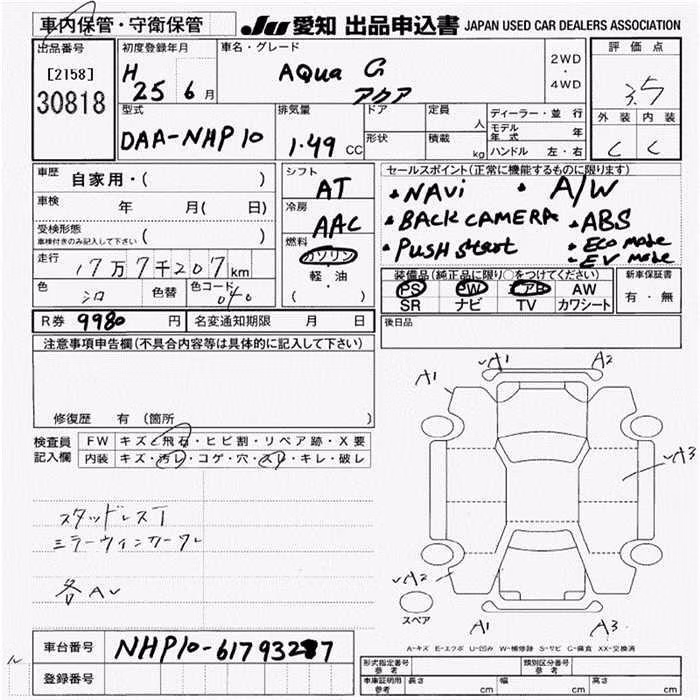 車内保管・守衛保管
JU 愛知 出品申込書 JAPAN USED CAR DEALERS ASSOCIATION
出品番号
[2158]
30818
初度登録年月
H 25 6月
車名・グレード
AQua G
アクア
2WD
・
4WD
評価点
3.5
外装 内装
C C
型式
DAA-NHP10
排気量
1.49 CC
ドア
形状
定員
人
積載
kg
ディーラー・並 行
モデル年式 年
ハンドル 左・右
車歴 自家用・( )
車検 年 月( 日)
受検形態
車検付きのみ記入して下さい ( )
走行 17万7千207km
色 シロ 色替 色コード 040
シフト
AT
冷房
AAC
燃料
ガソリン
軽・油
( )
セールスポイント(正常に機能するものに限ります)
・NAVi ・A/W
・BACK CAMERA ・ABS
・PUSH Start ・Eco mode
・EV mode
装備品(純正品に限り○をつけてください)
PS PW エアB AW
SR ナビ TV カワシート
新車保証書
有・無
R券 9980 円 名変通知期限 月 日
後日品
注意事項申告欄(不具合内容等は具体的に記入して下さい)
修復歴 有 (箇所 )
検査員
記入欄
FW キズ・飛石・ヒビ割・リペア跡・X要
内装 キズ・汚レ・コゲ・穴・スレ・キレ・破レ
スタッドレスT
ミラーウィンカー
各AU
A1 A1 A2
A3
A2
A1 A3
スペア
A-キズ E-エクボ U-凹み W-補修跡 S-サビ C-腐食 XX-交換済
車台番号 NHP10-6179327
登録番号
形式指定番号
参考
類別区分番号
参考
車庫証明用
参考
長さ cm 幅 cm 高さ cm